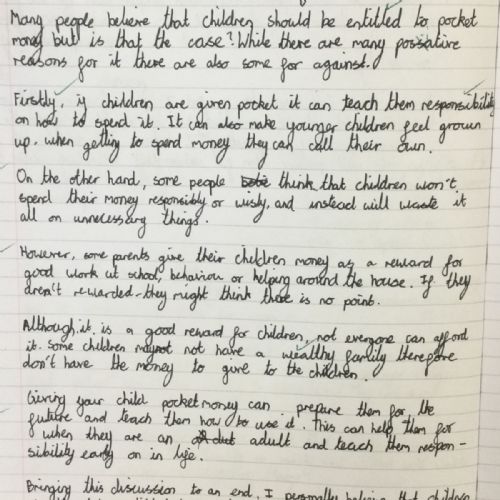 Many people believe that children should be entitled to pocket
money but is that the case? While there are many possative
reasons for it there are also some for against.
Firstly, if children are given pocket it can teach them responsibility
on how to spend it. It can also make younger children feel grown
up. when getting to spend money they can call their own.
On the other hand, some people think that children won't
spend their money responsibly or wisly, and instead will waste it
all on unnecessary things.
However, some parents give their children money as a reward for
good work at school, behaviour or helping around the house. If they
aren't rewarded-they might think there is no point.
Although it is a good reward for children, not everyone can afford
it. Some children not have a wealthy family therefore
don't have the money to give to the children.
Giving your child pocket money can prepare them for the
future and teach them how to use it. This can help them for
when they are an adult and teach them respon-
sibility early on in life.
Bringing this discussion to an end, I personally believe that children